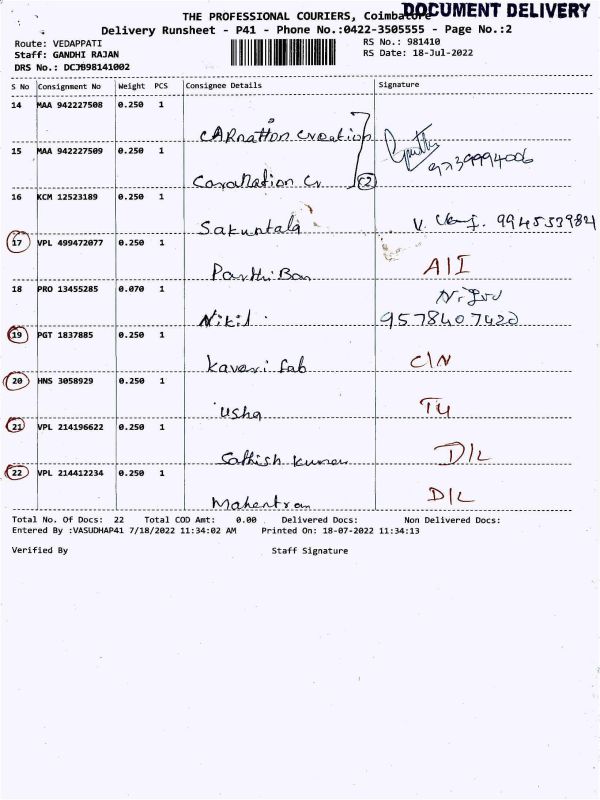 THE PROFESSIONAL COURIERS, Coimbatore
DOCUMENT DELIVERY
Delivery Runsheet - P41 - Phone No.:0422-3505555 - Page No.:2
Route: VEDAPPATI RS No.: 981410
Staff: GANDHI RAJAN RS Date: 18-Jul-2022
DRS No.: DCJB98141002
S No Consignment No Weight PCS Consignee Details Signature
14 MAA 942227508 0.250 1
CARnation Creation
15 MAA 942227509 0.250 1
9739994006
Caranation Cr (2)
16 KCM 12523189 0.250 1
Sakuntala V. 9945539824
17 VPL 499472077 0.250 1
ParthiBan A/I
18 PRO 13455285 0.070 1
Nikil. 9578407420
19 PGT 1837885 0.250 1
Kaveri fab C/N
20 HNS 3058929 0.250 1
usha T4
21 VPL 214196622 0.250 1
Sathish kumar D/L
22 VPL 214412234 0.250 1
Mahentran D/L
Total No. Of Docs: 22 Total COD Amt: 0.00 Delivered Docs: Non Delivered Docs:
Entered By :VASUDHAP41 7/18/2022 11:34:02 AM Printed On: 18-07-2022 11:34:13
Verified By Staff Signature